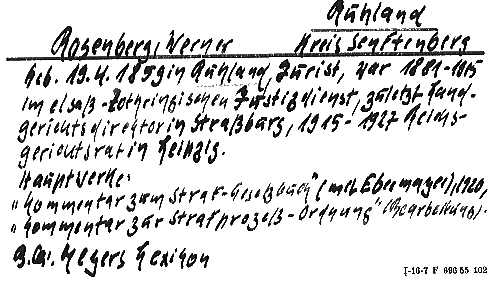 Ruhland
Rosenberg, Werner Kreis Senftenberg
Geb. 19.4.1859 in Ruhland, Jurist, war 1881-1915
im elsaß-lothringischen Justizdienst, zuletzt Land-
gerichtsdirektor in Straßburg, 1915-1927 Reichs-
gerichtsrat in Leipzig.
Hauptwerke:
"Kommentar zum Straf-Gesetzbuch" (mit Ebermayer), 1920,
"Kommentar zur Strafprozeß-Ordnung" (Bearbeitung).
Meyers Lexikon
I-16-7 F 696 55 102